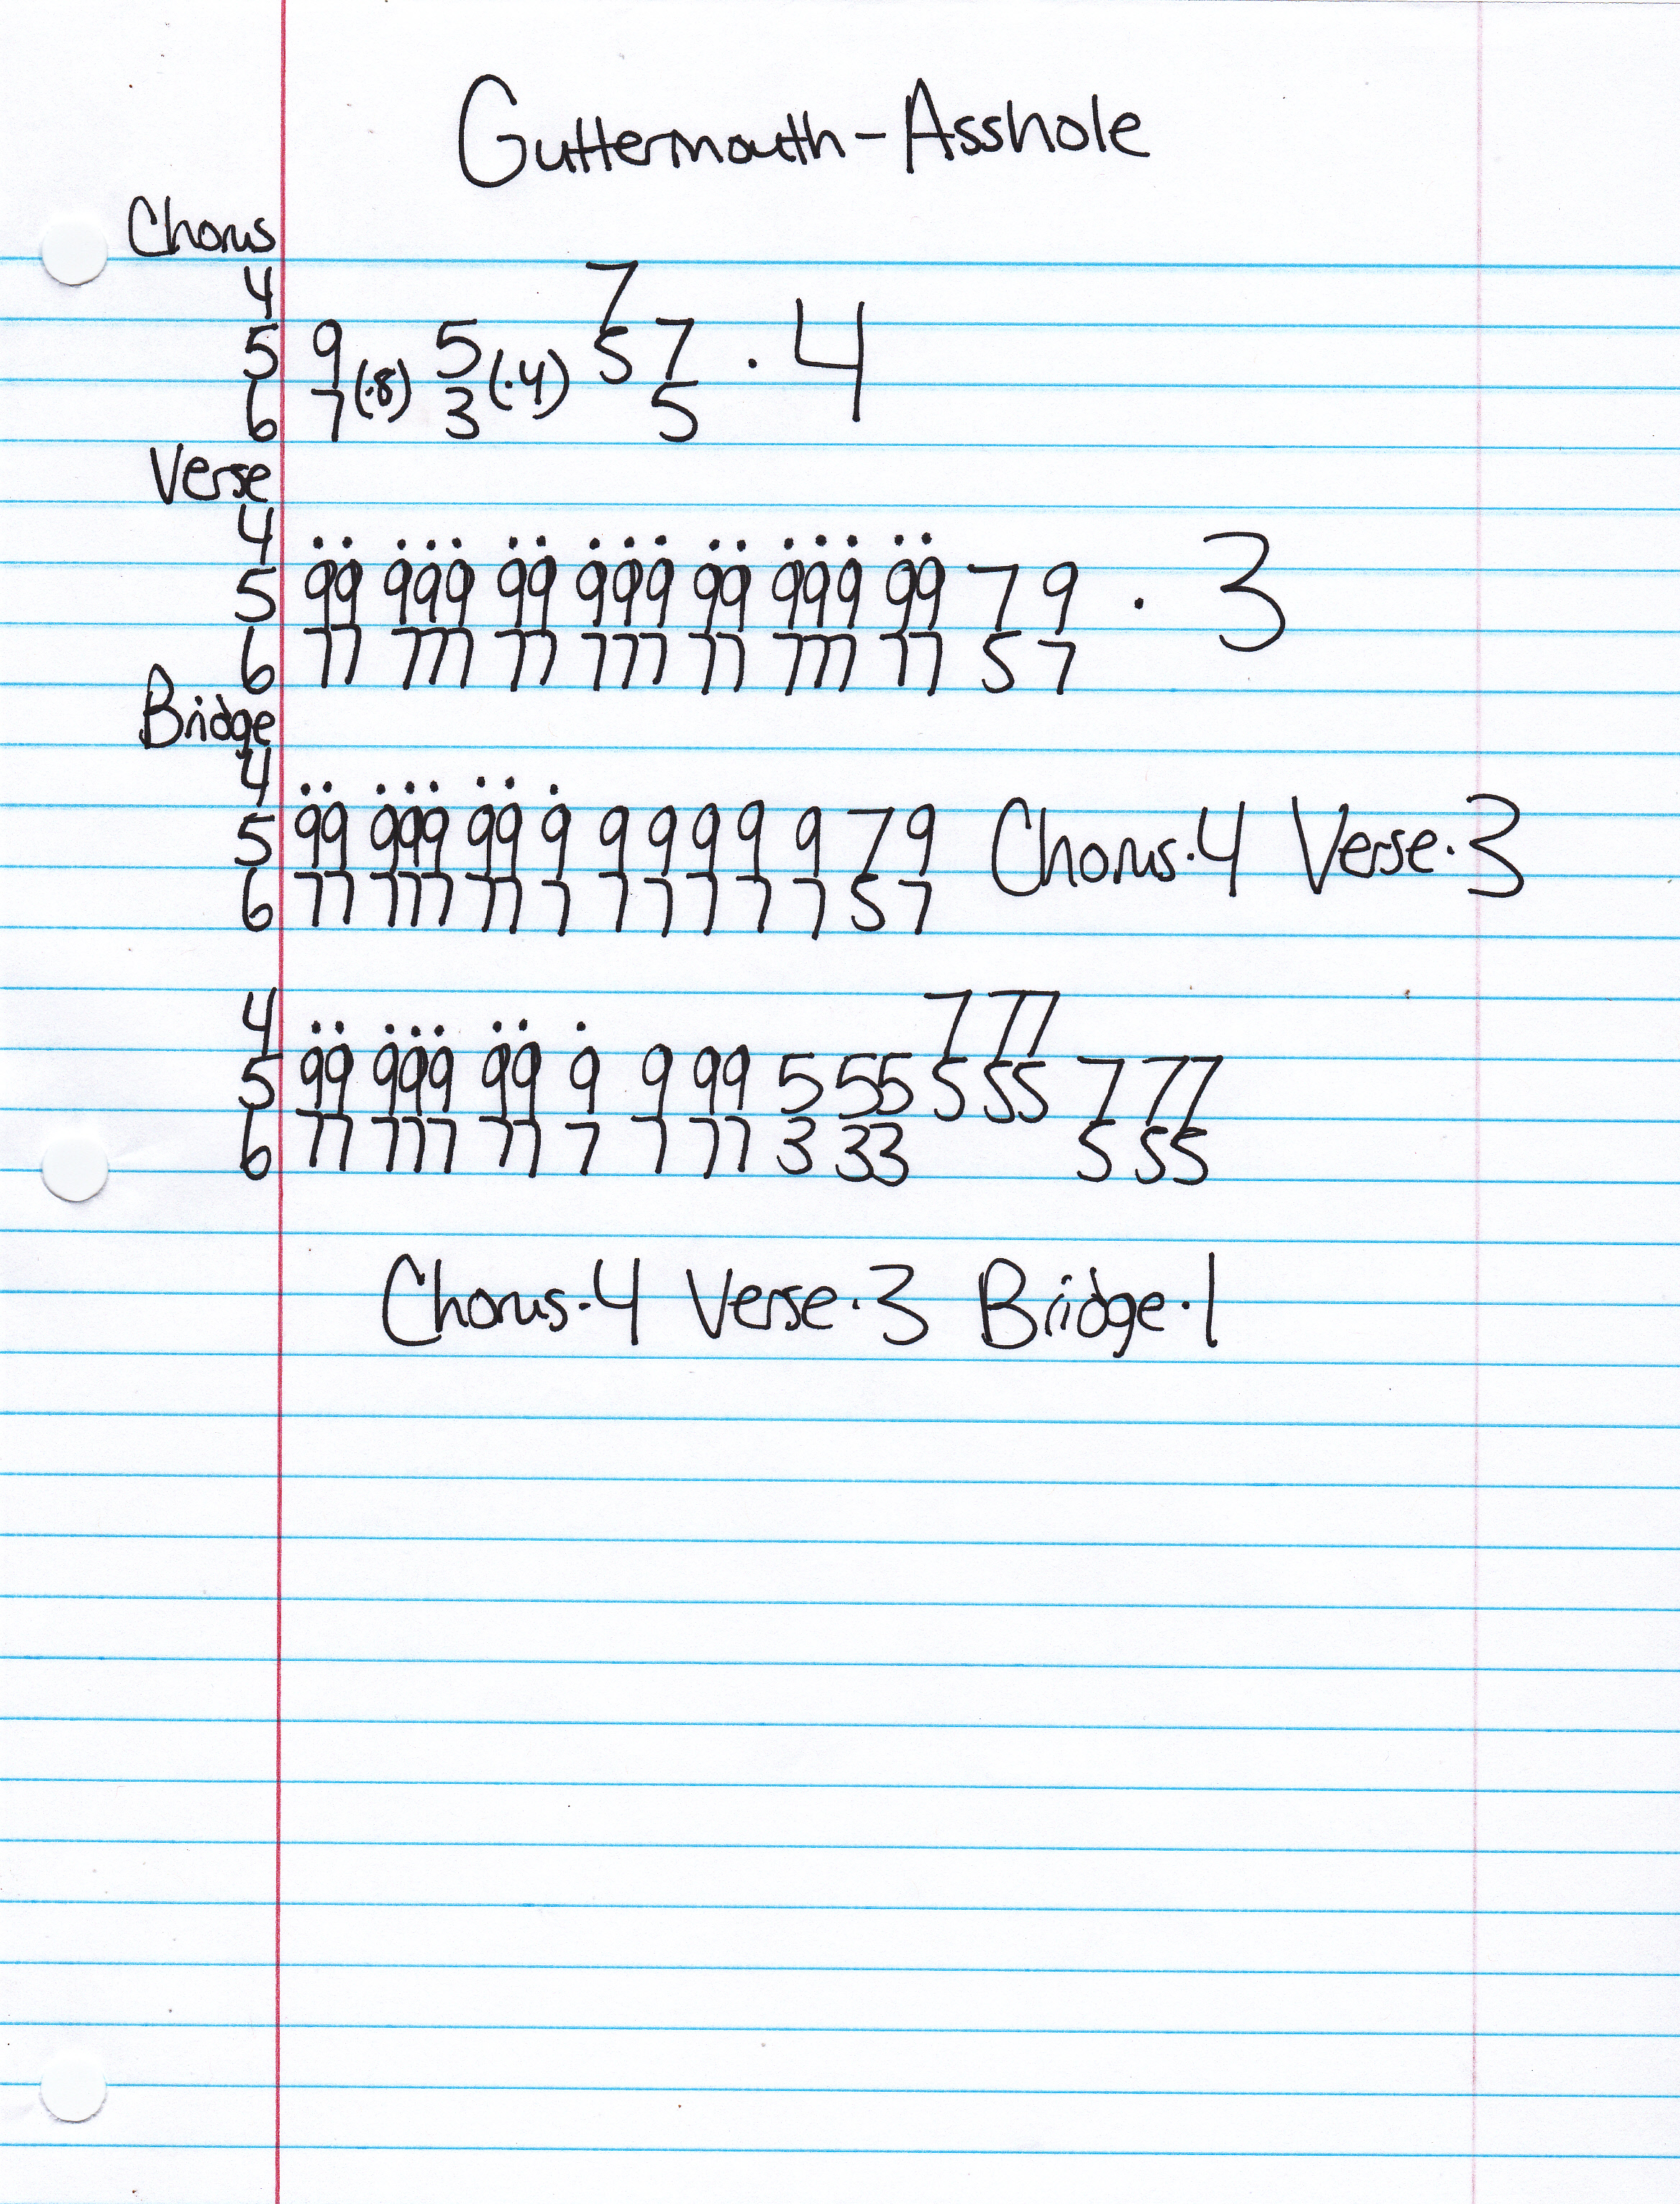 Guttermouth - Asshole
Chorus
4 7
5 9 (·8) 5 (·4) 5 7 · 4
6 7 3 5
Verse
4 . . . . . . . . . . . . . . . . .
5 99 999 99 999 99 999 99 7 9 · 3
6 77 777 77 777 77 777 77 5 7
Bridge
4 . . . . . . . .
5 99 999 99 9 9 9 9 9 9 7 9 Chorus·4 Verse·3
6 77 777 77 7 7 7 7 7 7 5 7
4 . . . . . . . . 7 77
5 99 999 99 9 9 99 5 55 5 55 7 77
6 77 777 77 7 7 77 3 33 5 55
Chorus·4 Verse·3 Bridge·1